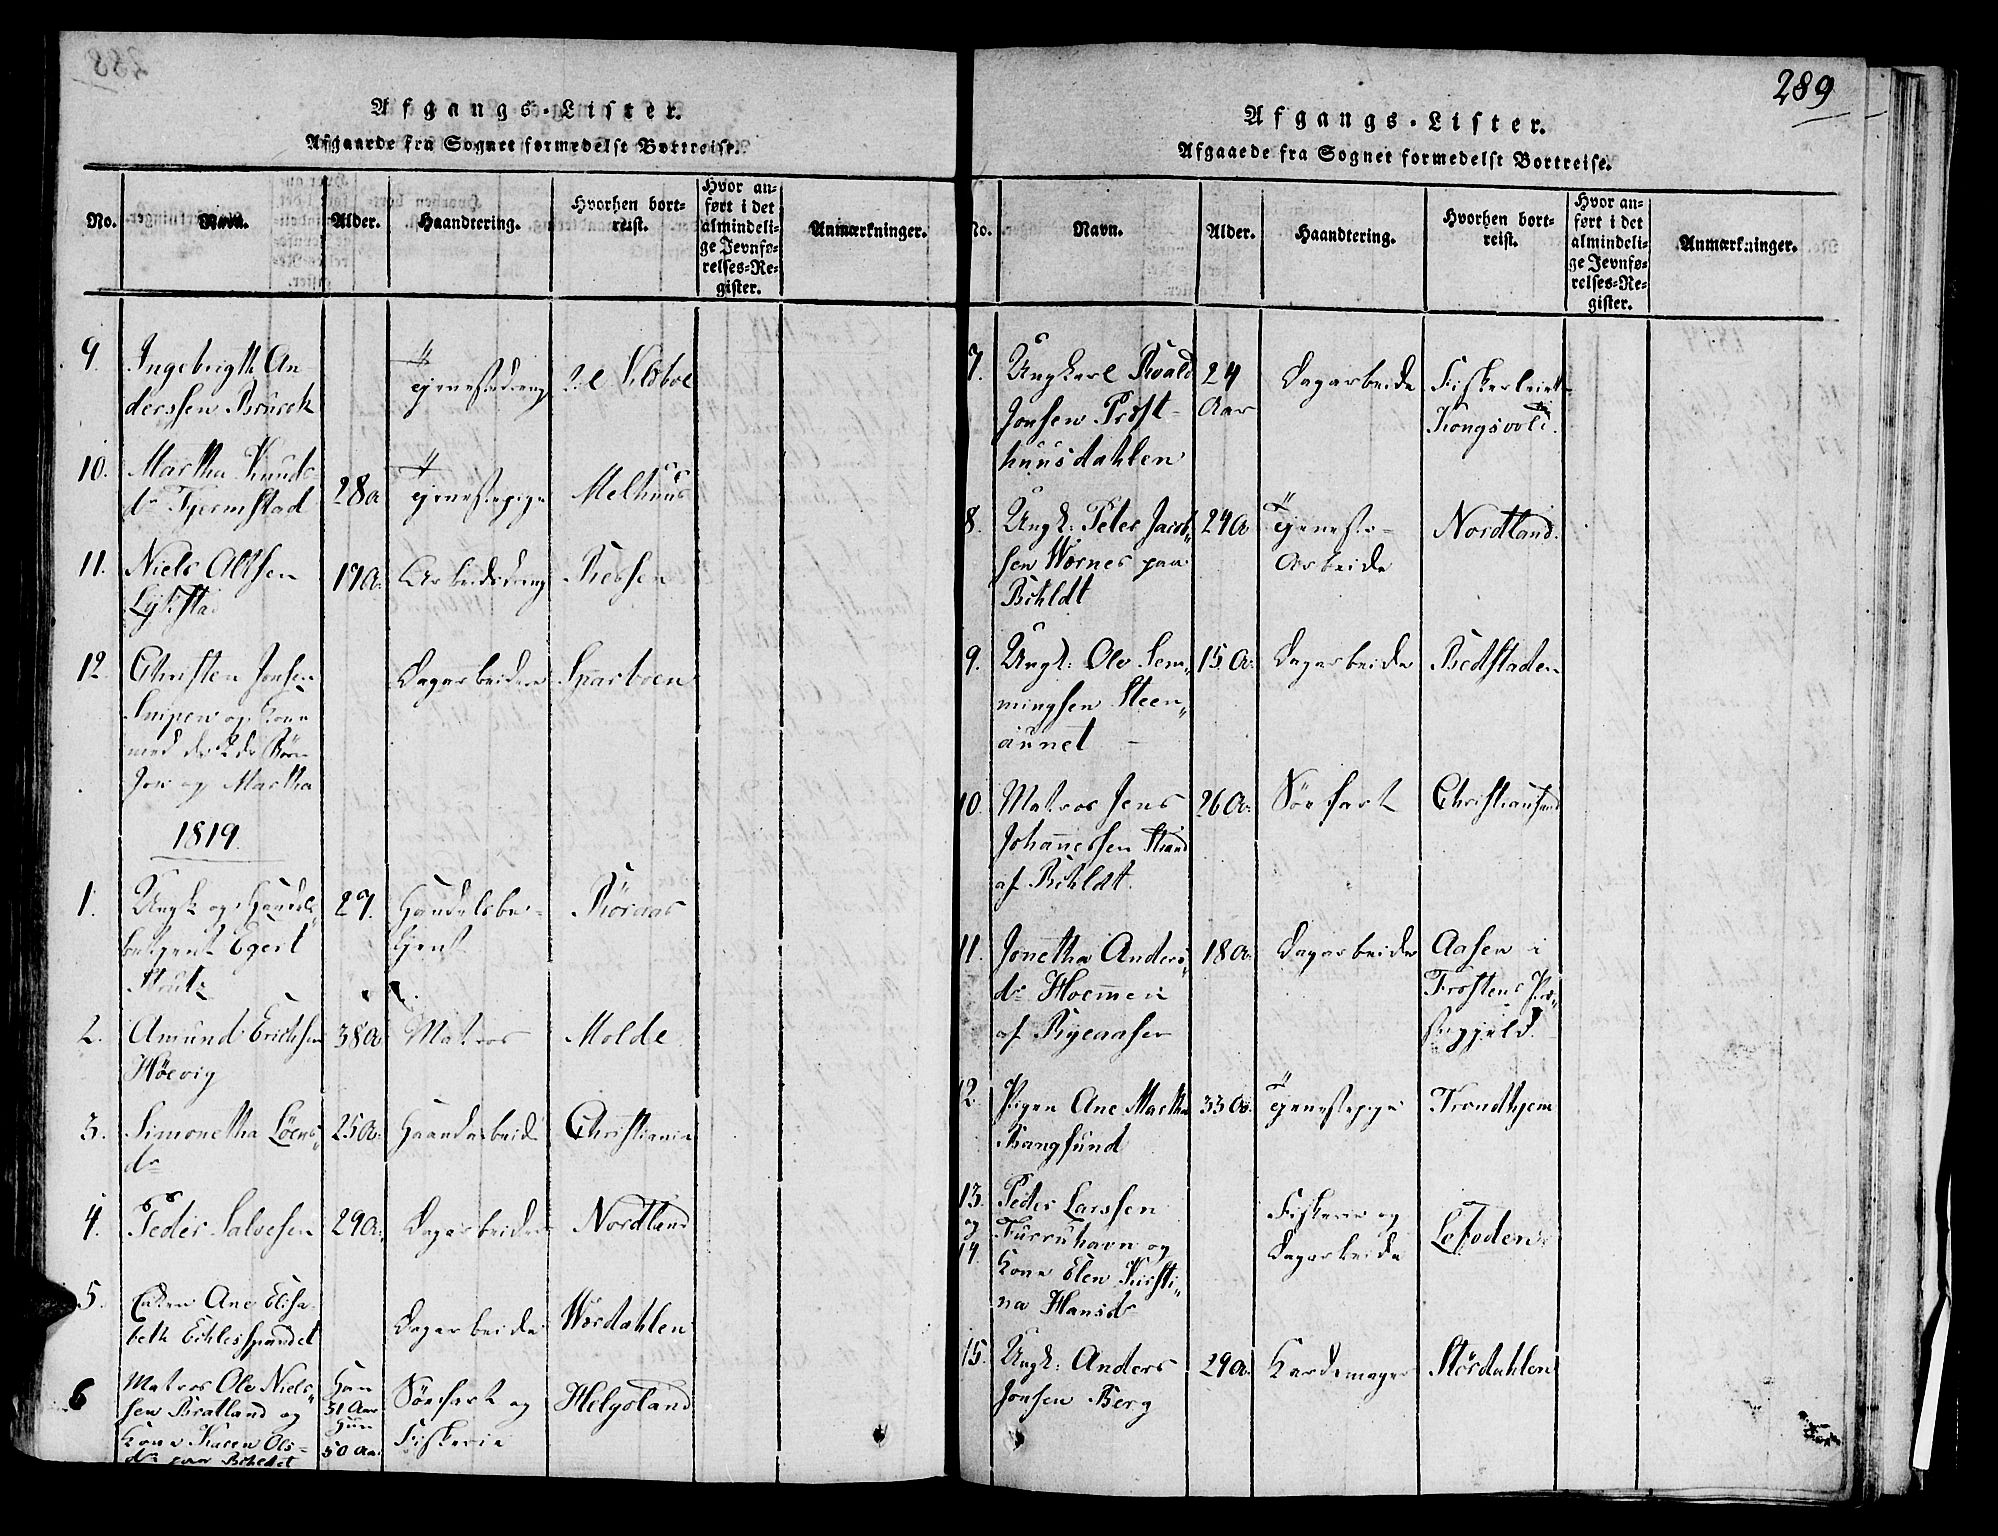 Afgangs-Lister.
Afgaaede fra Sognet formedelst Bortreise.
No.
Navn.
Alder.
Haandtering.
Hvorhen bort-
reist.
Hvor an-
ført i det
almindeli-
ge Jevnfø-
relses-Re-
gister.
Anmærkninger.
9.
Ingebrigth An
derssen
Tjenestedreng
10.
Martha Knuds
dr Tjermstad
28a
Tjenestepige
Melhuus
11.
Niels Olssen
19a.
Arbeidsdreng
12
Christen Jonsen
Snipen og Kone
med de 2de Børn
Jon og Martha
Dagarbeider
Sparboen
1819.
1.
Ungk og Handels
betjent Egert
29.
Handelsbe-
tjent
Röraas
2.
Amund Erichsen
Höevig
38a
Matros
Molde
3.
Simonetha Löens
dr
25a.
Haandarbeide
Christiania
4.
Peder Salvesen
29a.
Dagarbeider
Nordland
5.
Enken Ane Elisa
beth
Dagarbeide
Wærdahlen
6
Matros Ole Niels
sen Bratland og
Kone Karen Ols-
dr paa
Han
51 Aar
Hun
50 Aar
Söefart og
Fiskerie
Helgoland
289
Afgangs-Lister.
Afgaaede fra Sognet formedelst Bortreise.
No.
Navn.
Alder.
Haandtering.
Hvorhen bort-
reist.
Hvor an-
ført i det
almindeli-
ge Jevnfø-
relses-Re-
gister.
Anmærkninger.
7.
Ungkarl Roald
Jonsen Præst-
huusdahlen
24
Aar
Dagarbeide
Fiskerleiet
Kongsvold.
8.
Ungk: Peter Jacob
sen Wærnes paa
Bihldt
24a
Tjeneste-
Arbeide
Nordland.
9.
Ungk: Ole Sem
mingsen Steen
aunet
15 a.
Dagarbeide
Bedstaden
10.
Matros Jens
Johannessen Strand
af Bihldt.
26a.
Söefart
Christiansund
11.
Jonetha Anders
dr Hoemmen
af Byeaasen
18a.
Dagarbeide
Aasen i
Frostens Præ-
stegjeld.
12.
Pigen Ane Martha
Bangsund
33a.
Tjenestepige
Trondhjem
13.
og
14.
Peder Larssen
Furruhavn og
Kone Elen Kirsti
na Hansdr
Fiskerie og
Dagarbeide
Lofoden
15.
Ungk: Anders
Jonsen Berg
29a.
Kardemager
Stördahlen